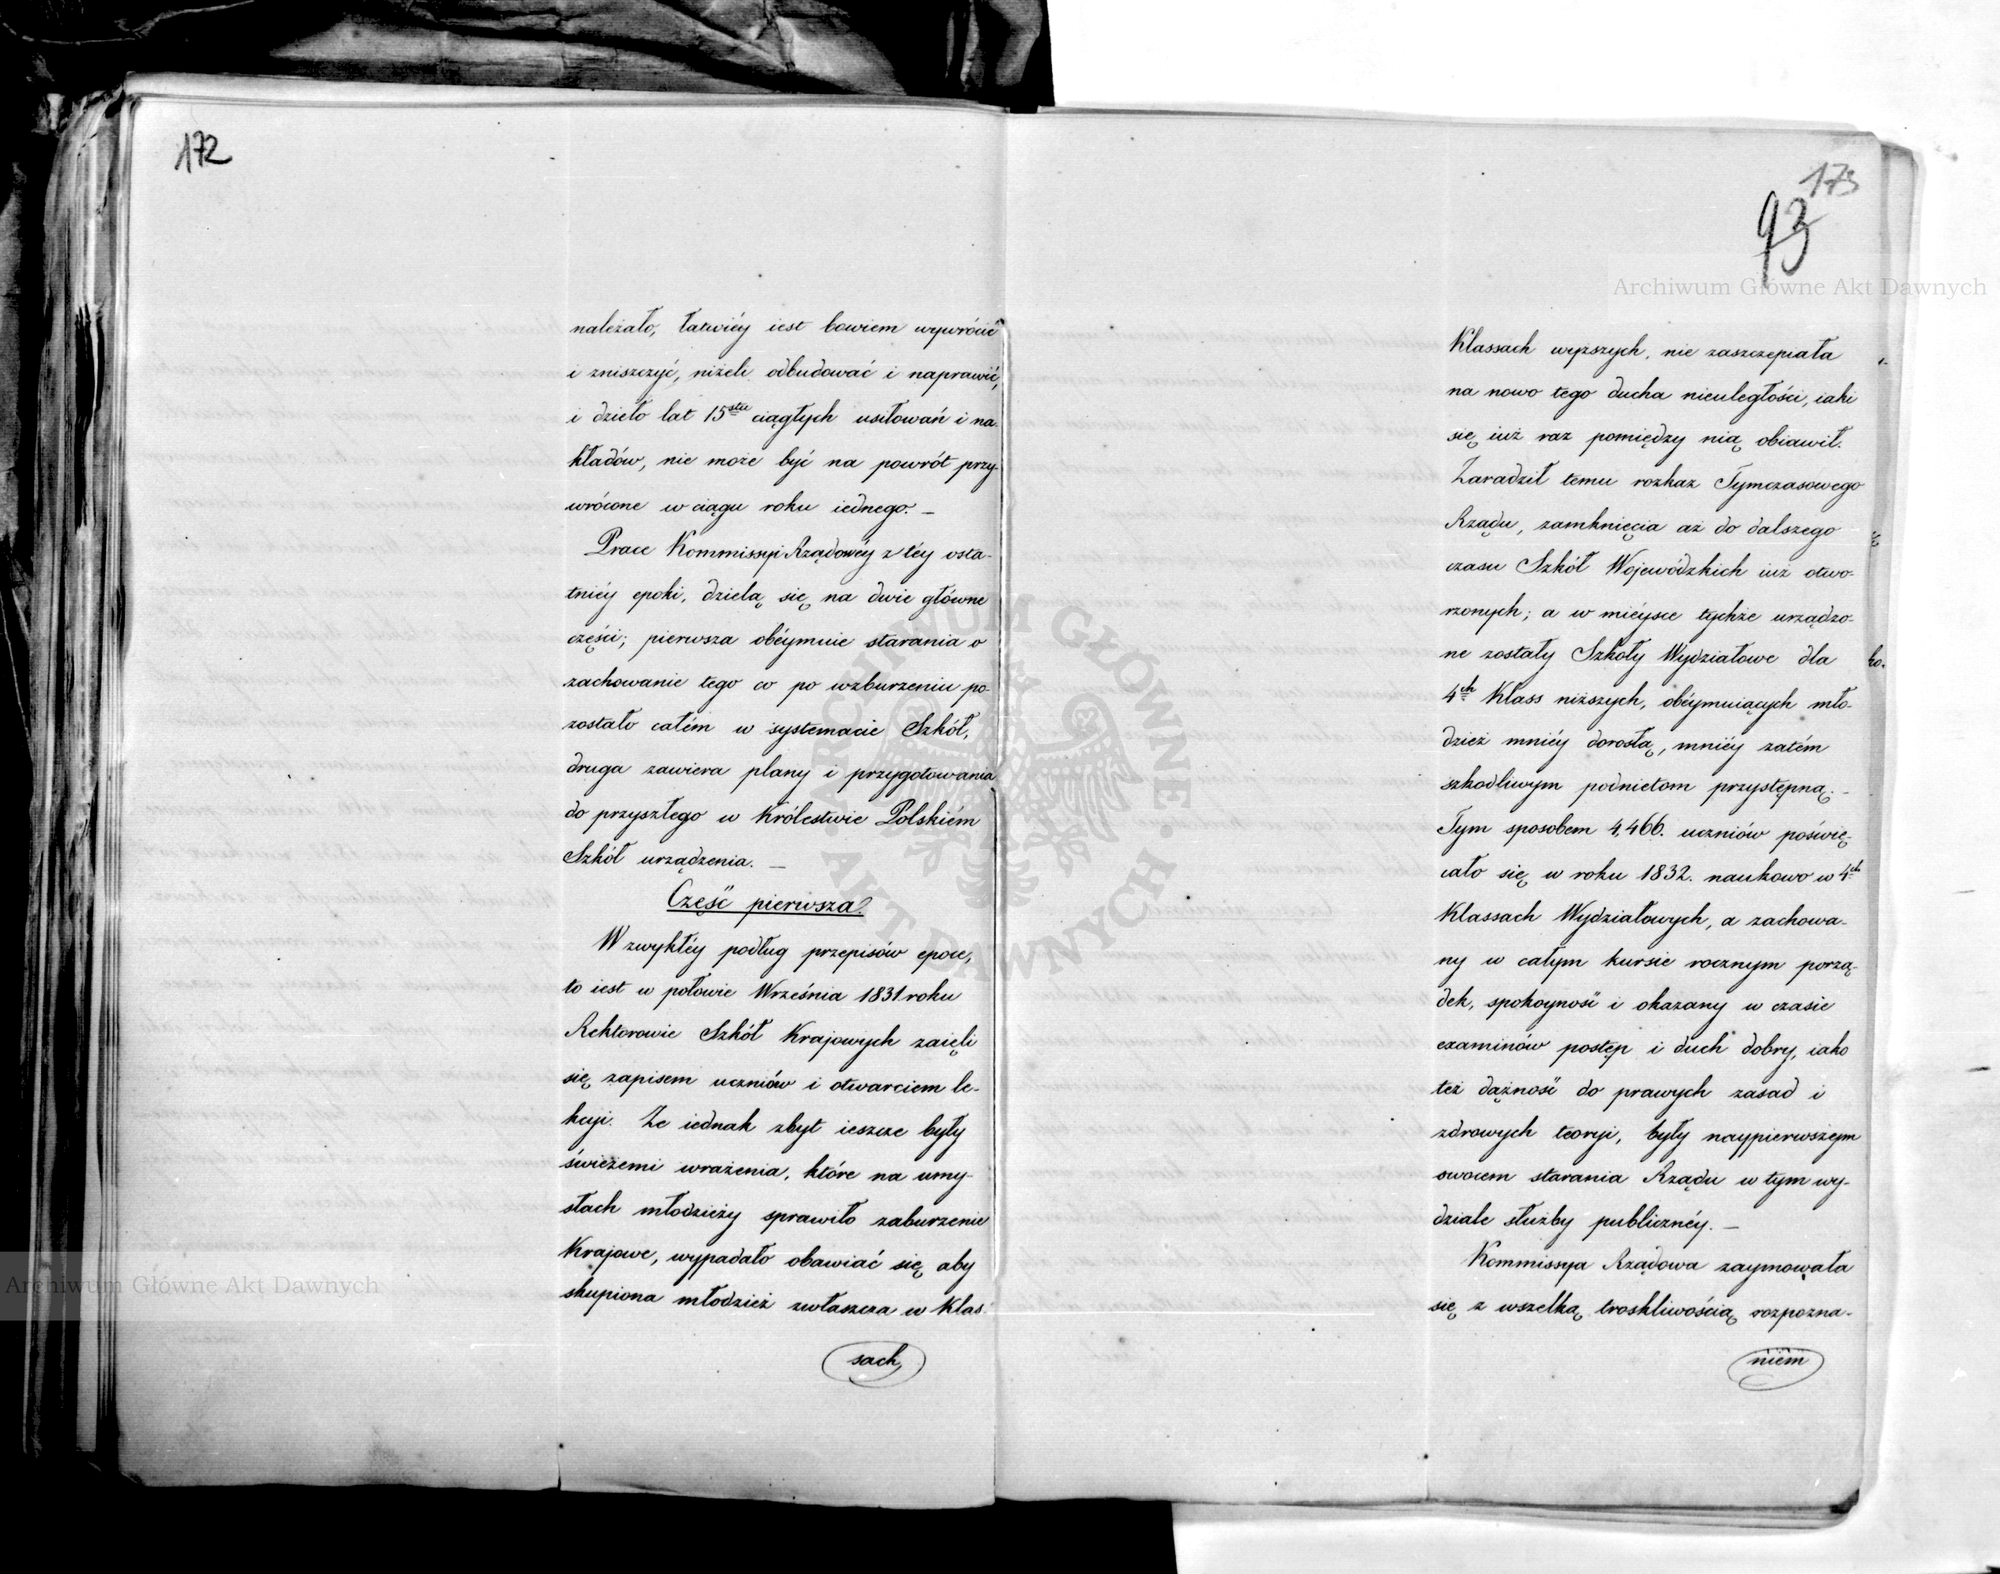 172
należało, łatwiéy iest bowiem wywrócić
i zniszczyć, niżeli odbudować i naprawić,
i dzieło lat 15stu ciągłych usiłowań i na-
kładów, nie może być na powrót przy-
wrócone w ciągu roku iednego. —
Prace Kommissyi Rządowéy z téy osta-
tniéy epoki, dzielą się na dwie główne
części; pierwsza obéymuie starania o
zachowanie tego co po wzburzeniu po-
zostało całém w systemacie Szkół,
druga zawiera plany i przygotowania
do przyszłego w Królestwie Polskiém
Szkół urządzenia. —
Część pierwsza.
W zwykłéy podług przepisów epoce,
to iest w połowie Września 1831 roku
Rektorowie Szkół Krajowych zaięli
się zapisem uczniów i otwarciem le-
kcyi. Że iednak zbyt ieszcze były
świeżemi wrażenia, które na umy-
słach młodzieży sprawiło zaburzenie
Krajowe, wypadało obawiać się aby
skupiona młodzież zwłaszcza w Klas-
sach
173
93
Klassach wyższych, nie zaszczepiała
na nowo tego ducha nieuległości, iaki
się iuż raz pomiędzy nią obiawił.
Zaradził temu rozkaz Tymczasowego
Rządu, zamknięcia aż do dalszego
czasu Szkół Wojewódzkich iuż otwo-
rzonych; a w mieysce tychże urządzo-
ne zostały Szkoły Wydziałowe dla
4ch Klass niższych, obéymuiących mło-
dzież mniéy dorosłą, mniéy zatém
szkodliwym podnietom przystępną. —
Tym sposobem 4,466. uczniów poświę-
cało się w roku 1832. naukowo w 4ch
Klassach Wydziałowych, a zachowa-
ny w całym kursie rocznym porzą-
dek, spokoyność i okazany w czasie
examinów postęp i duch dobry, iako
też dążność do prawych zasad i
zdrowych teoryi, były naypierwszym
owocem starania Rządu w tym wy-
dziale służby publicznéy. —
Kommissya Rządowa zaymowała
się z wszelką troskliwością rozpozna-
niém
ko.
Archiwum Główne Akt Dawnych
Archiwum Główne Akt Dawnych
ARCHIWUM GŁÓWNE • AKT DAWNYCH •